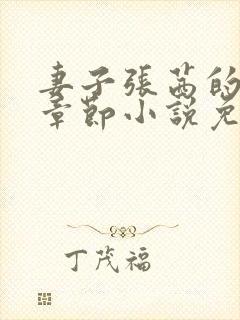 妻子張茜的
章節小說免
丁茂福